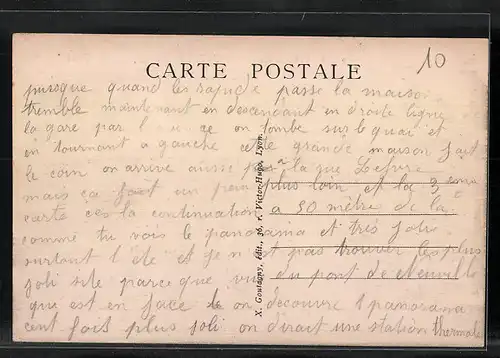 10
CARTE POSTALE
puisque quand les rapides passe la maison
tremble maintenant en descendant en droite ligne
la gare par on tombe sur le quai et
en tournant a gauche cette grande maison fait
le coin on arrive aussi par la rue
mais ça fait un peu plus loin et la 3 eme
carte ces la continuation a 50 mètre de la
comme tu vois le panorama et très joli
surtout l'été et je n'est pas trouver les plus
joli site parce que du pont de Neuville
que est en face on découvre 1 panorama
cent fois plus joli on dirait une station thermale
X. Goutagny, édit., 36, r. Victor-Hugo, Lyon.